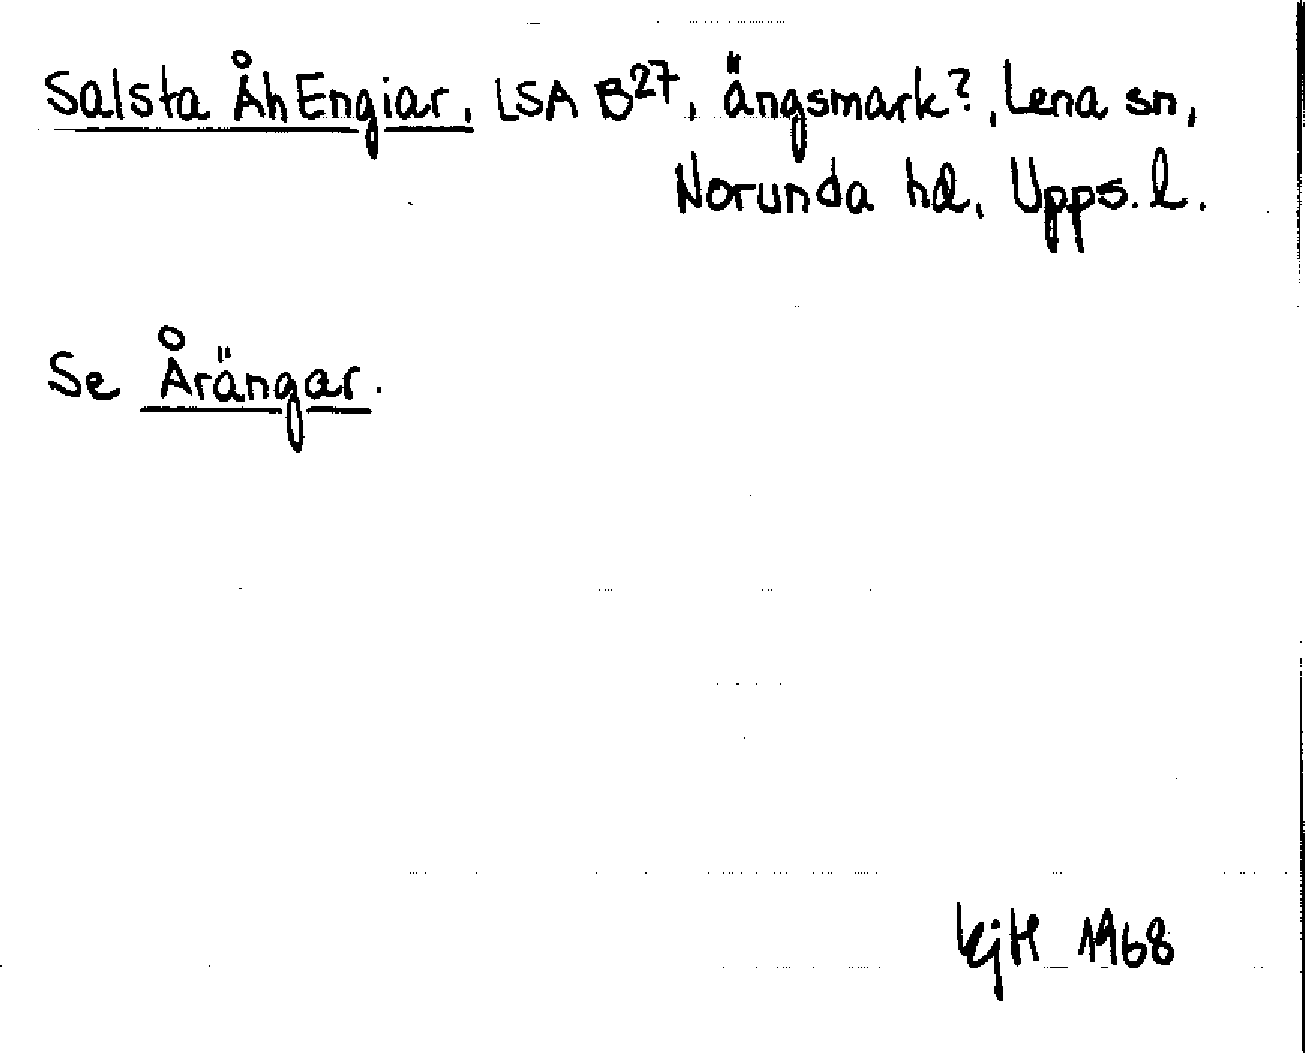 Salsta ÅhEngiar, LSA B27, ängsmark?, Lena sn,
Norunda hd, Upps. l.
Se Årängar.
kjH 1968